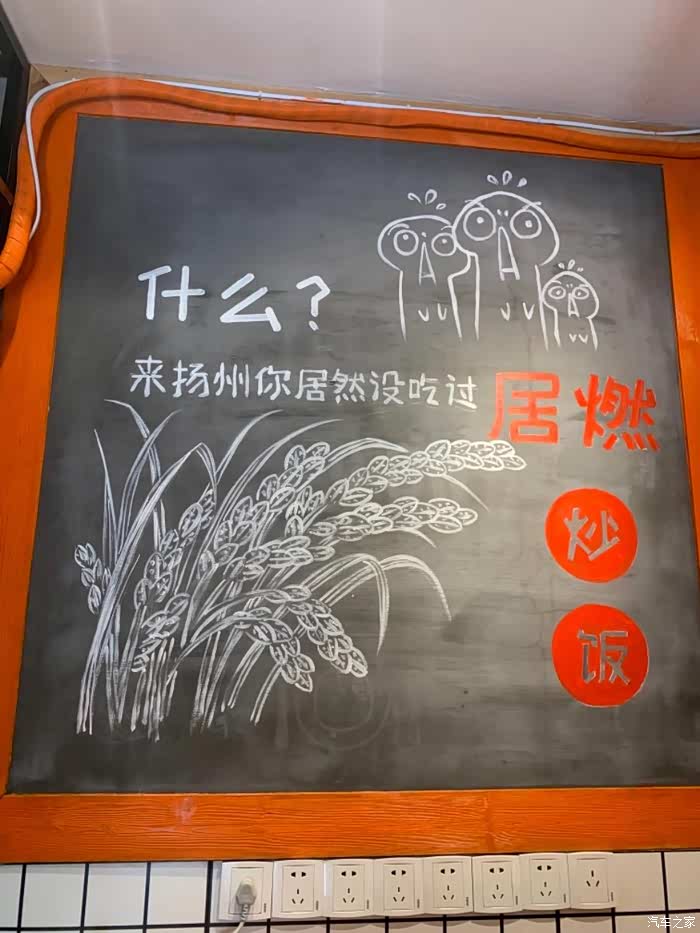 什么?
来扬州你居然没吃过居燃
炒
饭
汽车之家